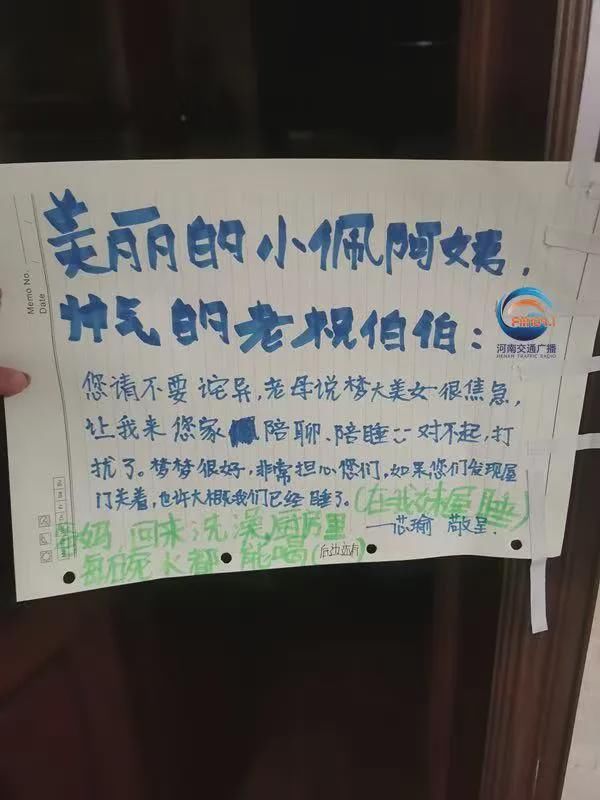 Memo No.
Date
美丽的小佩阿姨,
帅气的老祝伯伯:
FM104.1
河南交通广播
HENAN TRAFFIC RADIO
您请不要诧异,老母说梦大美女很焦急,
让我来您家陪聊、陪睡 对不起,打
扰了。梦梦很好,非常担心您们,如果您们发现屋
门关着,也许大概我们已经睡了。(在我妹屋睡)
妈 回来洗澡,厨房里
一芯瑜 敬呈.
每碗水都能喝(